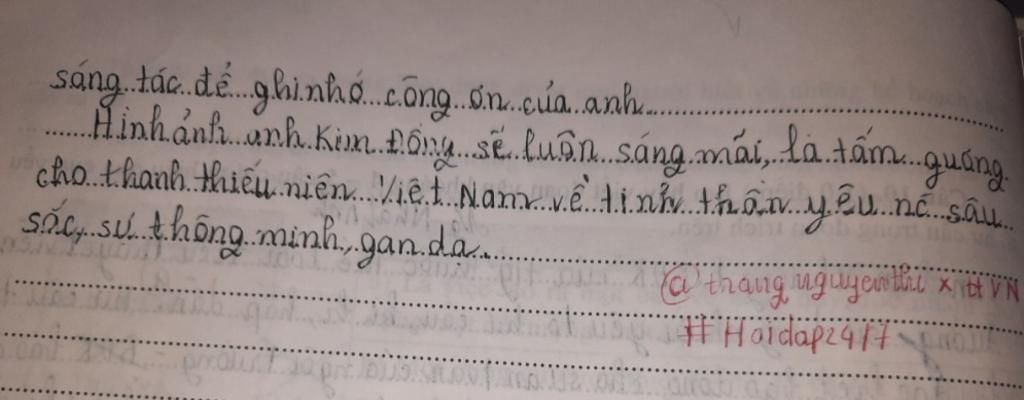 sáng tác để ghi nhớ công ơn của anh
Hình ảnh anh Kim Đồng sẽ luôn sáng mãi, là tấm gương
cho thanh thiếu niên Việt Nam về tinh thần yêu nc sâu
sắc, sự thông minh, gan dạ.
@ thangnguyenthi × ttVN
# Hoidap247